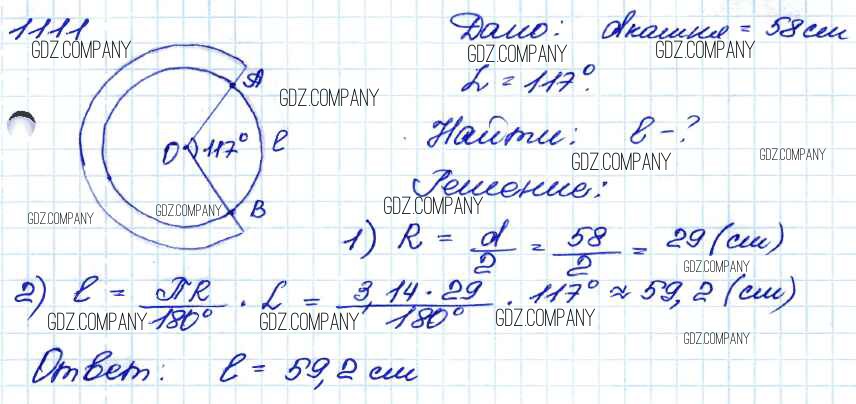 1111
Дано: dкамня = 58 см
GDZ.COMPANY GDZ.COMPANY GDZ.COMPANY
A
L = 117°.
GDZ.COMPANY
O 117° l
Найти: l - ?
GDZ.COMPANY GDZ.COMPANY
Решение:
GDZ.COMPANY GDZ.COMPANY B GDZ.COMPANY
1) R = d/2 = 58/2 = 29 (см)
GDZ.COMPANY
2) l = ПR/180° · L = 3,14 · 29/180° · 117° ≈ 59,2 (см)
GDZ.COMPANY GDZ.COMPANY GDZ.COMPANY GDZ.COMPANY
Ответ: l = 59,2 см